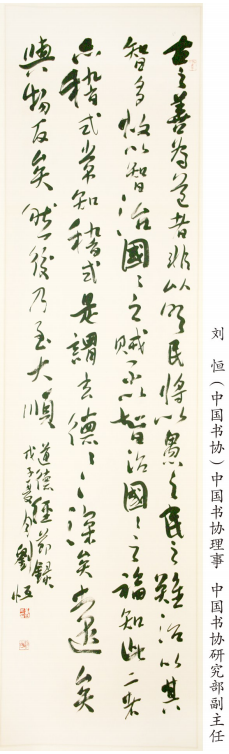 古之善為道者非以明民將以愚之民之難治以其
智多故以智治國〻之賊不以智治國〻之福知此二者
亦稽式常知稽式是謂玄德〻深矣遠矣
與物反矣然後乃至大順
道德經節錄
戊子夏月劉恒
刘 恒(中国书协)中国书协理事 中国书协研究部副主任